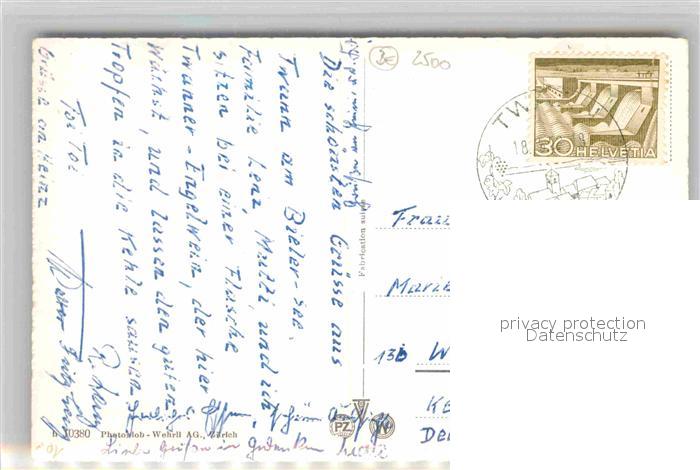 Die schönsten Grüsse aus
Twann am Bieler-see.
Familie Lenz, Mutti, und ich
sitzen bei einer Flasche
Twanner-Engelwein, der hier
wächst, und lassen den guten
Tropfen in die Kehle sausen
Toi Toi
Grüsse an Heinz
Liebe Grüsse in Gedanken
3€
2500
TW
18.
30 HELVETIA
Fabrication suisse
Frau
Marie
13b W
KE
De
PZ
W
10380 Photoglob-Wehrli AG., Zürich
privacy protection
Datenschutz